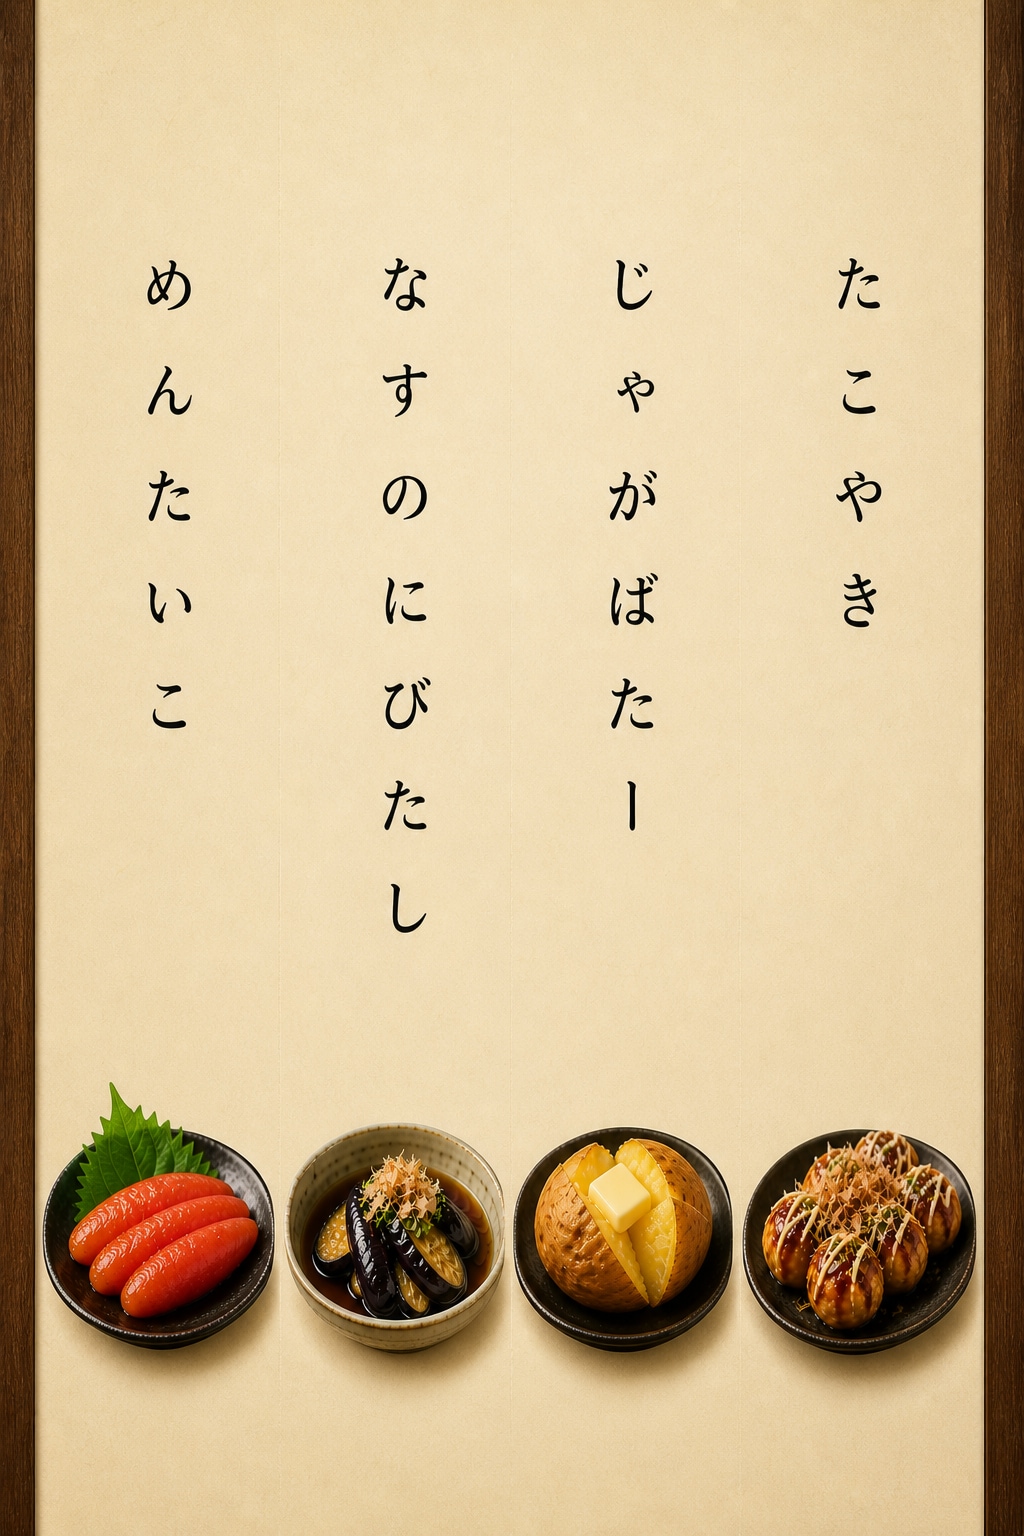 たこやき
じゃがばたー
なすのにびたし
めんたいこ